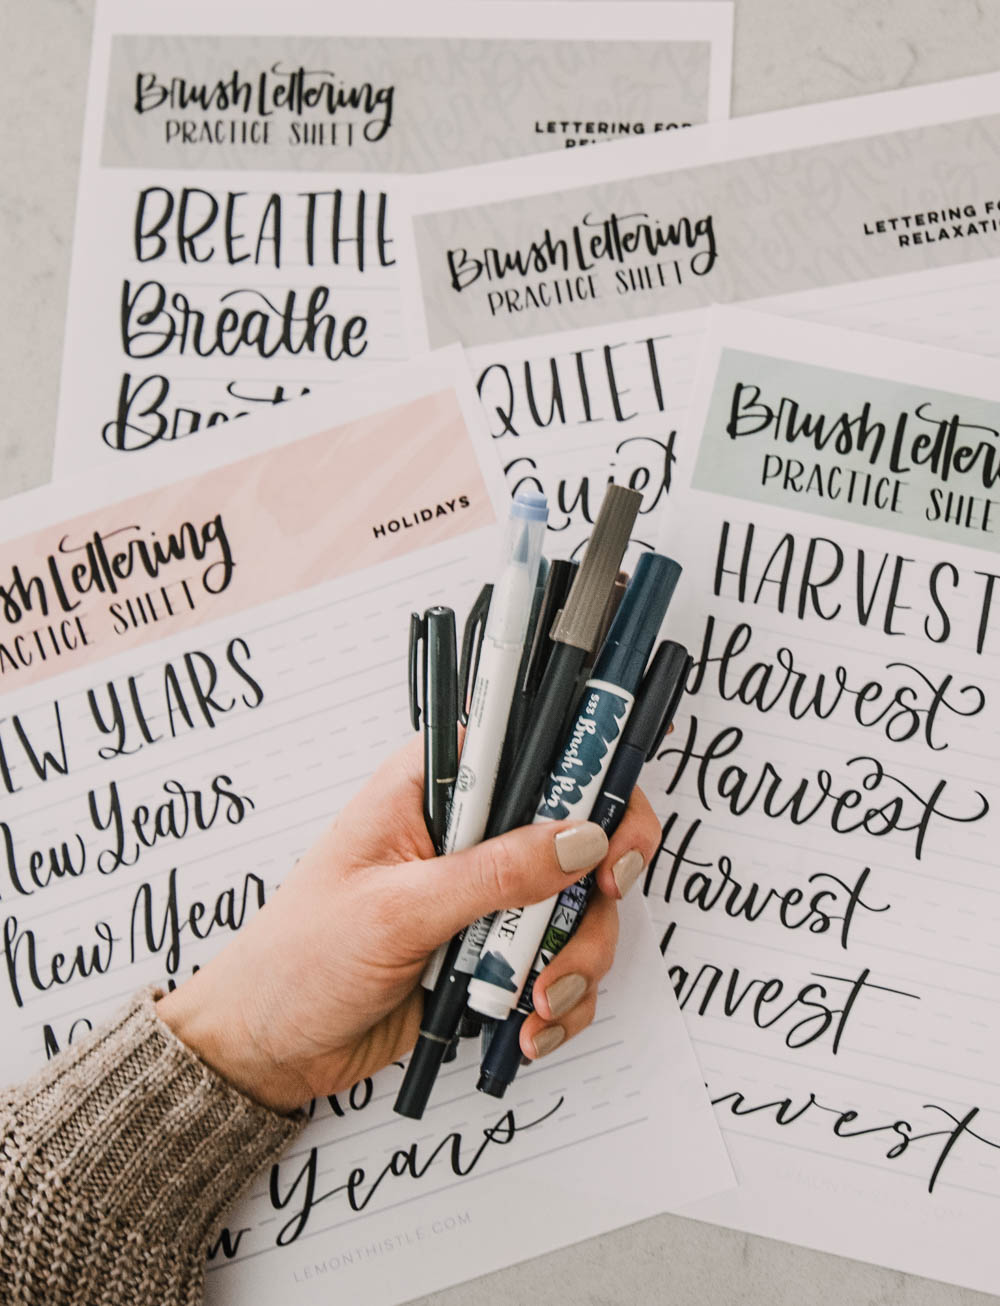 Brush Lettering
PRACTICE SHEET
LETTERING FOR
BREATHE
Breathe
Brush Lettering
PRACTICE SHEET
LETTERING FO
RELAXATI
QUIET
Quiet
Brush Letter
PRACTICE SHEE
HARVEST
Harvest
Harvest
Harvest
arvest
HOLIDAYS
sh Lettering
ACTICE SHEET
EW YEARS
New Years
New Year
Years
LEMONTHISTLE.COM
553 Brush pen